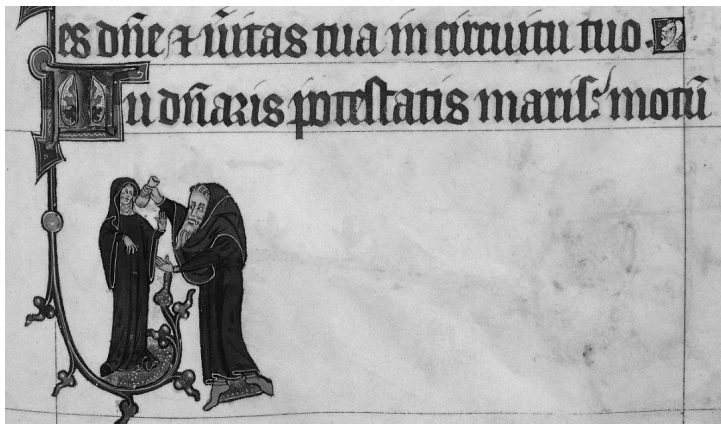 es dn̄e ⁊ ūitas tua in circuitu tuo.
Tu dn̄aris potestatis maris: motū